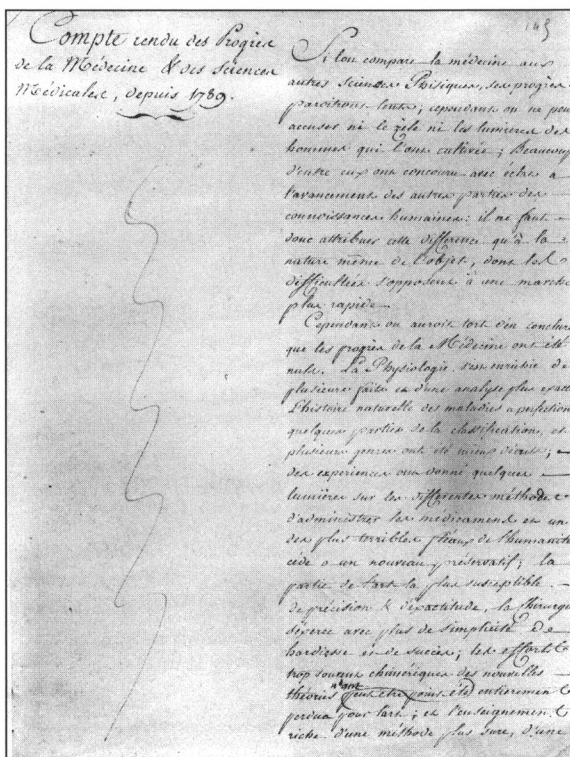 145
Compte rendu des Progrès
de la Médecine & des sciences
Médicales, depuis 1789.
Si l'on compare la médecine aux
autres sciences Phisiques, ses progrès
paroitront lents; cependant on ne peut
accuser ni le zèle ni les lumieres des
hommes qui l'ont cultivée; Beaucoup
d'entre eux ont concouru avec éclat a
l'avancement des autres parties des
connoissances humaines: il ne faut
donc attribuer cette différence qu'à la
nature même de l'objet, dont les
difficultés s'opposent à une marche
plus rapide.
Cependant on auroit tort d'en conclure
que les progrès de la Médecine ont été
nuls. La Physiologie s'est enrichie de
plusieurs faits et d'une analyse plus exacte
L'histoire naturelle des maladies a perfectionné
quelques parties de la classification, et
plusieurs genres ont été mieux décrits;
des experiences ont donné quelques
lumières sur les différentes méthodes
d'administrer les médicamens et un
des plus terribles fléaux de l'humanité
cède a un nouveau préservatif; la
partie de l'art la plus susceptible
de précision & d'exactitude, la Chirurgie
s'exerce avec plus de simplicité de
hardiesse et de succès; les efforts
trop souvent chimériques des nouvelles
théories n'ont peut etre point été entierement
perdus pour l'art; et l'enseignement
riche d'une méthode plus sure, d'une